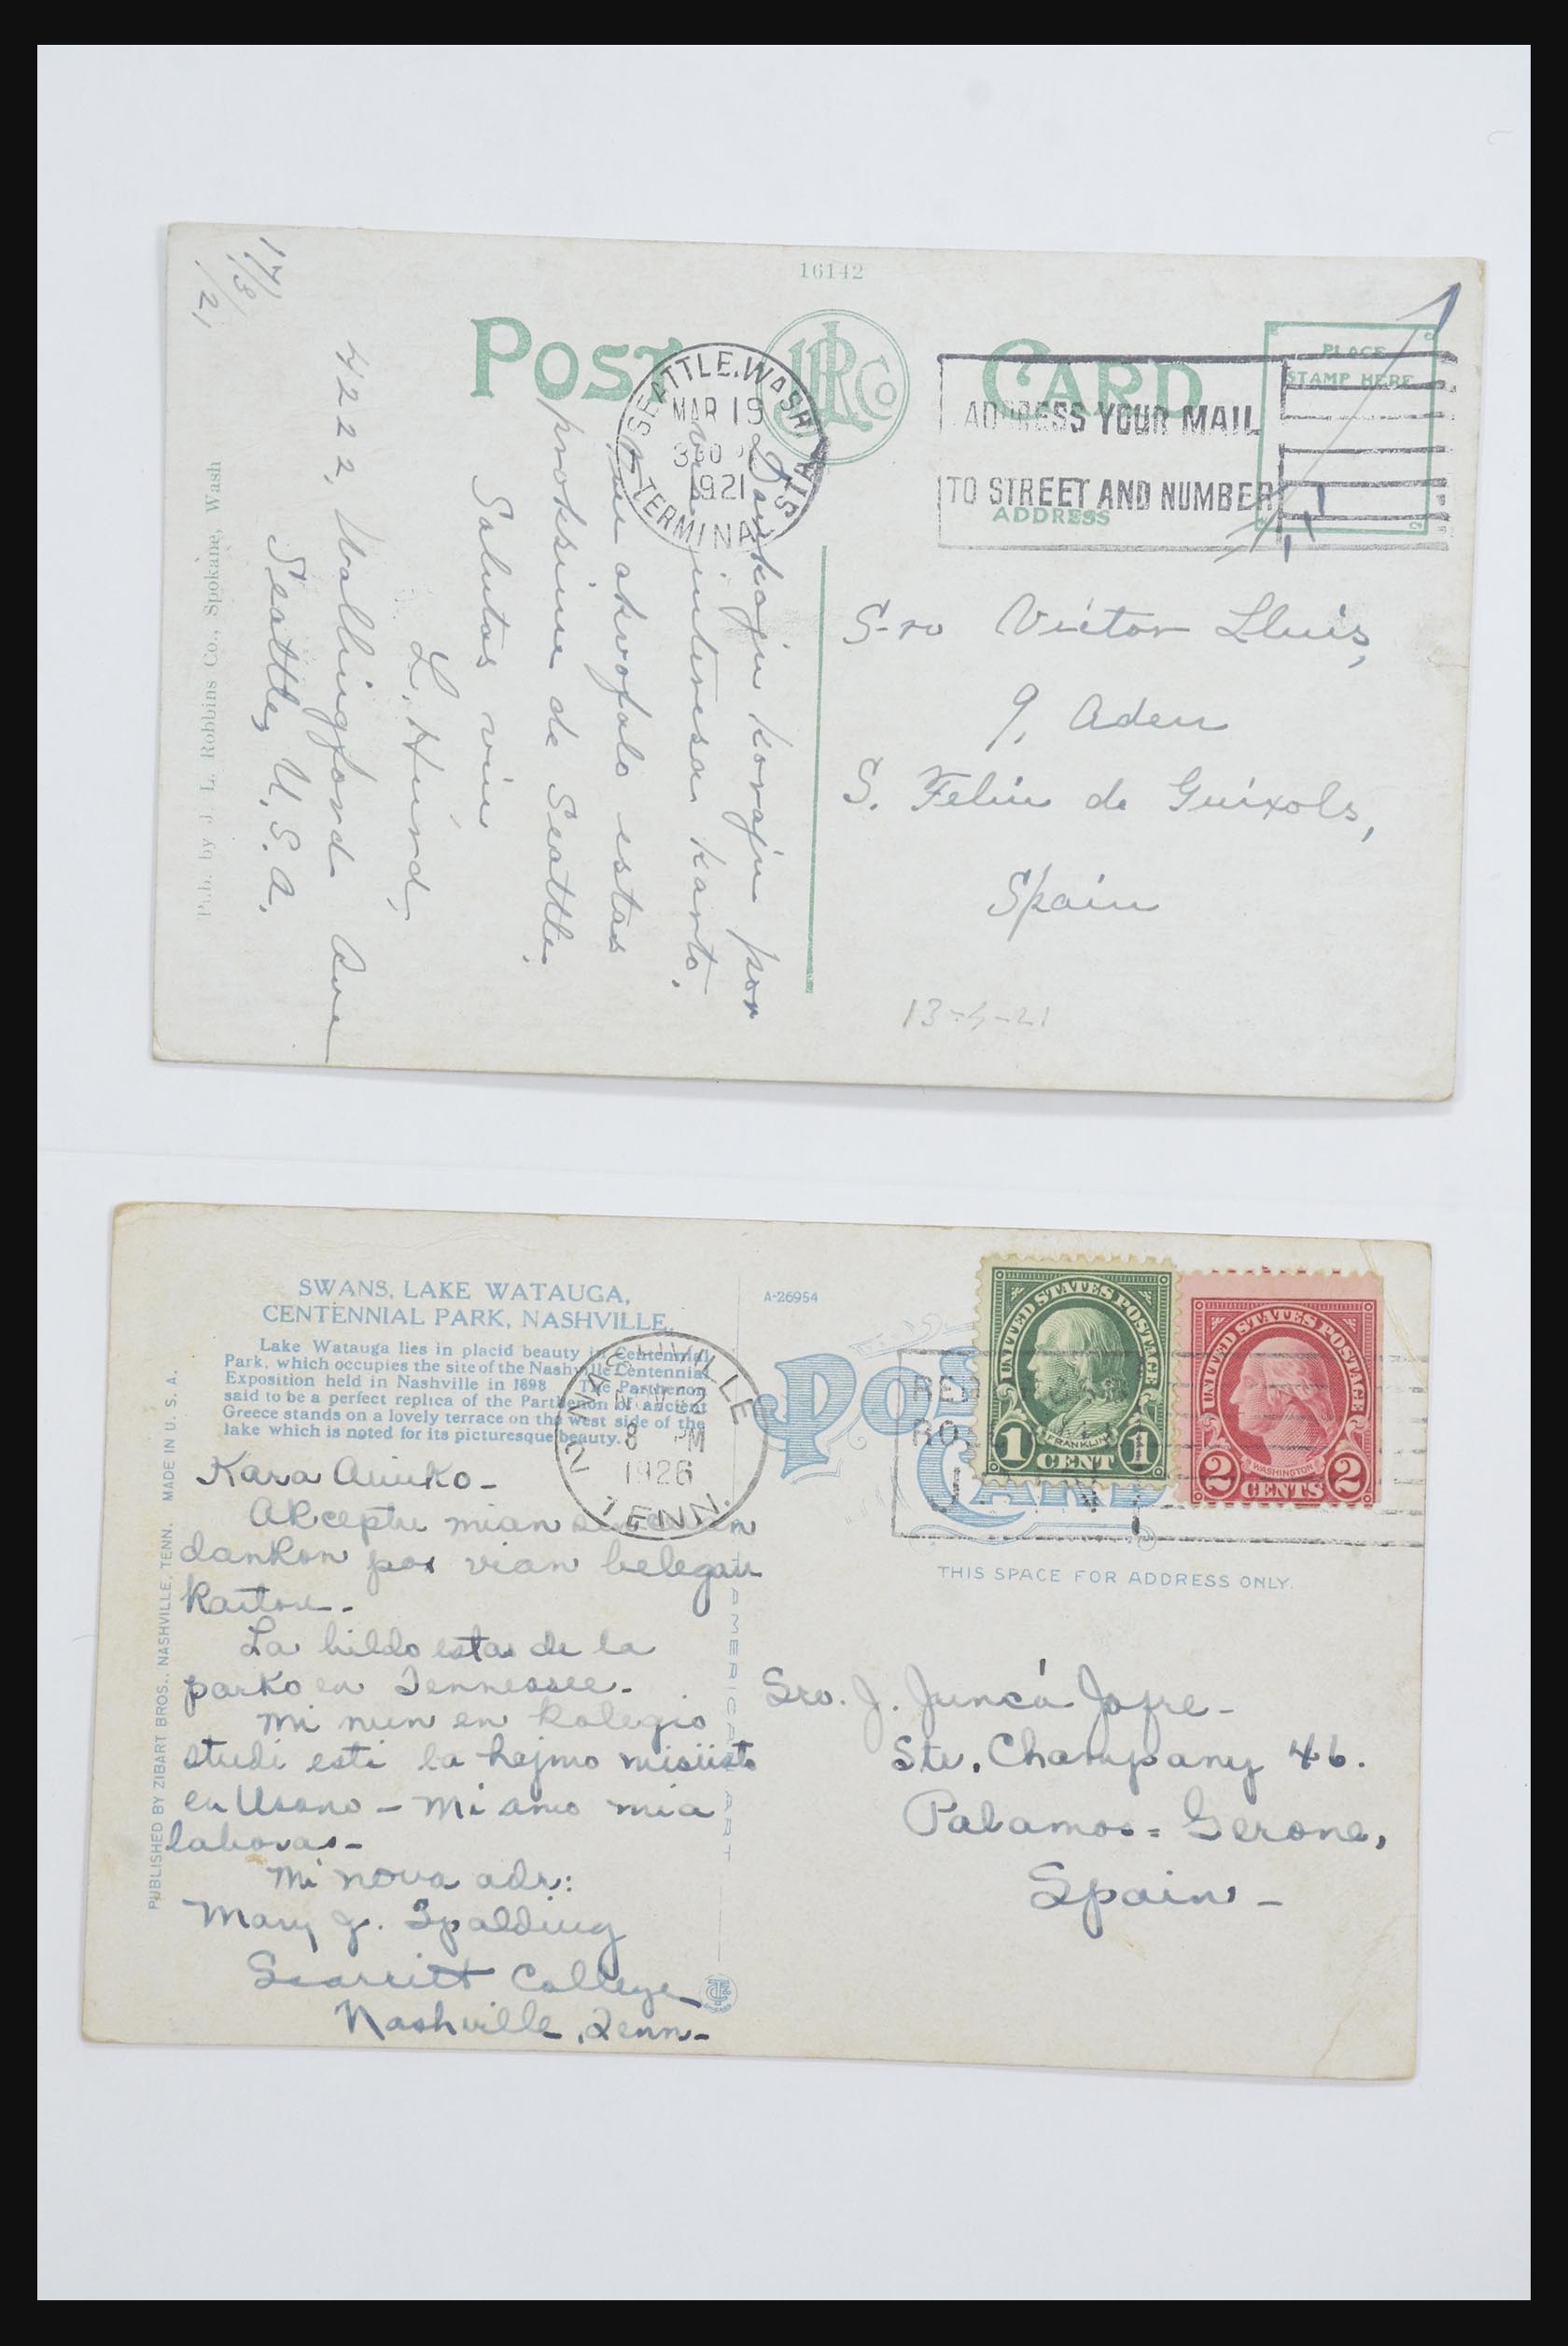 16142
POST CARD
JLRCo
PLACE
STAMP HERE
SEATTLE, WASH.
MAR 19
1921
TERMINAL STA
ADDRESS YOUR MAIL
TO STREET AND NUMBER
ADDRESS
17/3/21
Dankojn korajn por
via interesa karto.
akvofalo estas
proksime de Seattle.
Salutas vin
L. Hurd,
4222, Wallingford Ave
Seattle, U.S.A.
Pub. by J. L. Robbins Co., Spokane, Wash
S-ro Victor Lluis,
9, Aden
S. Feliu de Guixols,
Spain
13-4-21
SWANS, LAKE WATAUGA,
CENTENNIAL PARK, NASHVILLE.
Lake Watauga lies in placid beauty in Centennial
Park, which occupies the site of the Nashville Centennial
Exposition held in Nashville in 1898 The Parthenon
said to be a perfect replica of the Parthenon of ancient
Greece stands on a lovely terrace on the west side of the
lake which is noted for its picturesque beauty.
A-26954
NASHVILLE
NOV 2
8 PM
1926
TENN.
POST CARD
UNITED STATES POSTAGE
FRANKLIN
1 CENT 1
UNITED STATES POSTAGE
WASHINGTON
2 CENTS 2
THIS SPACE FOR ADDRESS ONLY.
Kara Amiko-
Akceptu mian
dankon por vian belegan
karton-
La bildo estas de la
parko en Tennessee-
Mi nun en kolegio
studi esti la hejmo
en Usono - Mi amo mia
laboras-
Mi nova adr:
Mary J. Spalding
Scarritt College
Nashville, Tenn-
PUBLISHED BY ZIBART BROS., NASHVILLE, TENN. MADE IN U. S. A.
AMERICAN ART
Sro. J. Juncá Jofre-
Str. Champany 46.
Palamos= Gerona,
Spain-